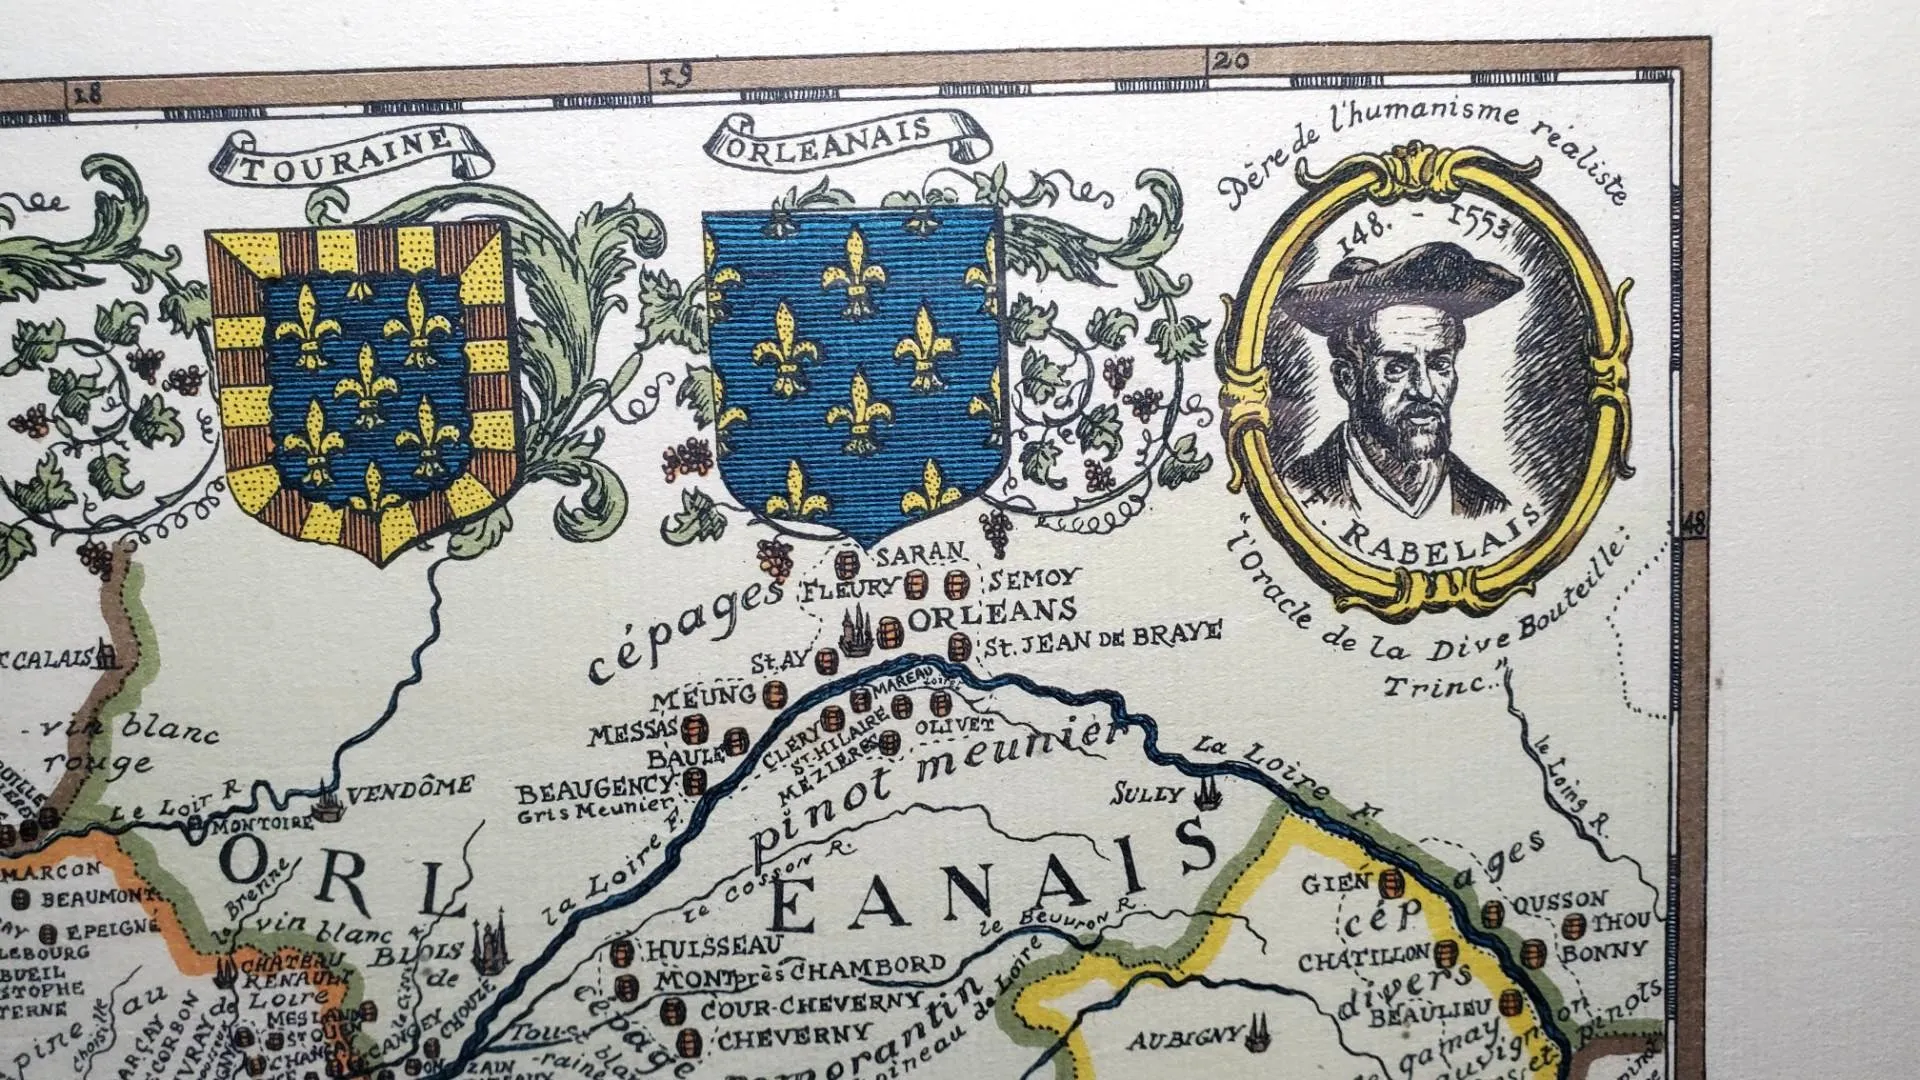 18
19
20
TOURAINE
ORLEANAIS
Père de l'humanisme réaliste
148. - 1553
F. RABELAIS
"l'Oracle de la Dive Bouteille:
Trinc.."
48
cépages
SARAN
FLEURY
SEMOY
ORLEANS
St. JEAN DE BRAYE
St. AY
MEUNG
MAREAU
Loiret
MESSAS
BAULE
CLERY
ST. HILAIRE
MEZIERES
OLIVET
BEAUGENCY
Gris Meunier
pinot meunier
CALAIS
vin blanc
rouge
Le Loir R
MONTOIRE
VENDÔME
la Loire F.
La Loire F.
SULLY
le Loing R.
ORLEANAIS
le Cosson R.
le Beuvron R.
MARCON
BEAUMONT
EPEIGNE
la Brenne
vin blanc
BLOIS
de
CHATEAU
RENAULT
Loire
MESLAND
HUISSEAU
MONT près CHAMBORD
COUR-CHEVERNY
CHEVERNY
cépage
romorantin
pineau de Loire
GIEN
cépages
OUSSON
THOU
CHATILLON
BONNY
divers
BEAULIEU
AUBIGNY
gamay
pinots
au
pine
choisille
CHOUZE